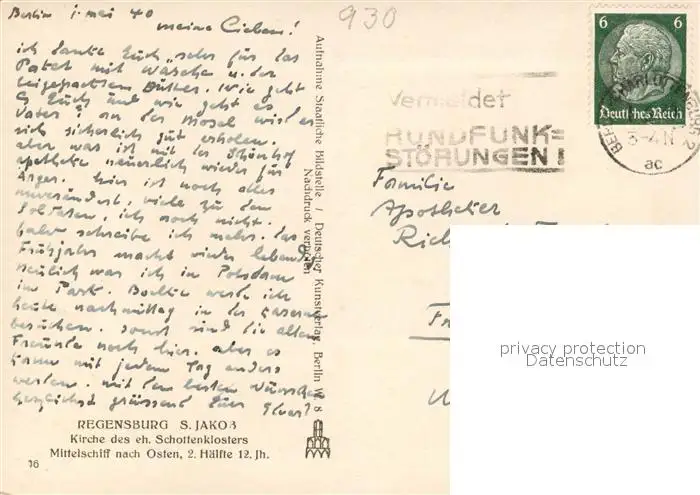 Berlin 1. Mai 40
meine Lieben!
ich danke Euch sehr für das
Paket mit Wäsche u. der
beigepackten Butter. Wie geht
es Euch und wie geht es
Vater? an der Mosel wird er
sich sicherlich gut erholen.
aber was ist mit der Schönhof
apotheke neuerlich wieder für
Ärger. hier ist noch alles
unverändert, viele zu den
Soldaten, ich noch nicht.
bald schreibe ich mehr. das
Frühjahr macht wieder lebendig
neulich war ich in Potsdam
im Park. werde ich
heute nachmittag in der Kaserne
besuchen. sonst sind die alten
Freunde noch hier. aber es
kann mit jedem Tag anders
werden. mit den besten Wünschen
herzlichst grüssend Euer
REGENSBURG S. JAKOB
Kirche des eh. Schottenklosters
Mittelschiff nach Osten, 2. Hälfte 12. Jh.
16
Aufnahme Staatliche Bildstelle / Deutscher Kunstverlag, Berlin W 8
Nachdruck verboten
930
Vermeidet
RUNDFUNK=
STÖRUNGEN!
6 6
Deutsches Reich
BERLIN-CHARLOTTENBURG 2
ac
Familie
Apotheker
privacy protection
Datenschutz